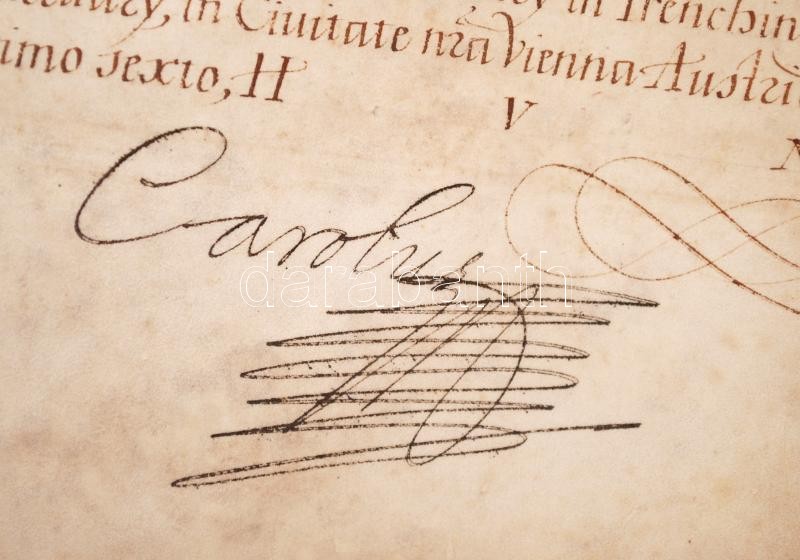 in Trenchin
in Ciuitate nrã Vienna Austri
imo sexto, H
V
Carolus
darabanth